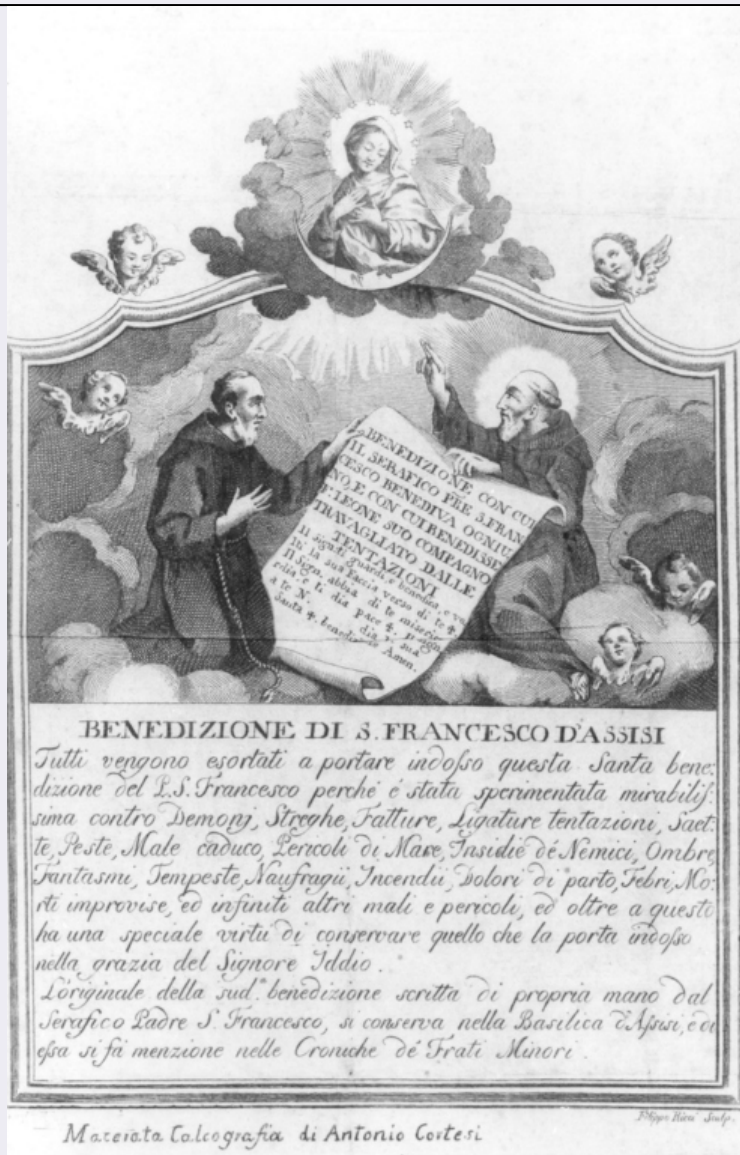 BENEDIZIONE CON CUI
IL SERAFICO PRE S. FRAN
CESCO BENEDIVA OGNIU
NO, E CON CUI BENEDISSE
F. LEONE SUO COMPAGNO
TRAVAGLIATO DALLE
TENTAZIONI
Il Sign. ti guardi, e benedica, e
la sua Faccia verso di te
Il Sign. abbia di te miseri
cordia, e ti dia pace
a te N. dia sua
Santa benedizione Amen.
BENEDIZIONE DI S. FRANCESCO D'ASSISI
Tutti vengono esortati a portare indoſso questa Santa bene:
dizione del P. S. Francesco perché é stata sperimentata mirabiliſ:
sima contro Demonj, Streghe, Fatture, Ligature tentazioni, Saet:
te, Peste, Male caduco, Pericoli di Mare, Insidie dé Nemici, Ombre,
Fantasmi, Tempeste, Naufragii, Incendii, Dolori di parto, Febri, Mo:
rti improvise, ed infiniti altri mali e pericoli, ed oltre a questo
ha una speciale virtú di conservare quello che la porta indoſso
nella grazia del Signore Iddio.
L'originale della sud.ª benedizione scritta di propria mano dal
Serafico Padre S. Francesco, si conserva nella Basilica d'Aſsisi, e di
eſsa si fá menzione nelle Croniche dé Frati Minori.
Filippo Ricci Sculp.
Macerata Calcografia di Antonio Cortesi